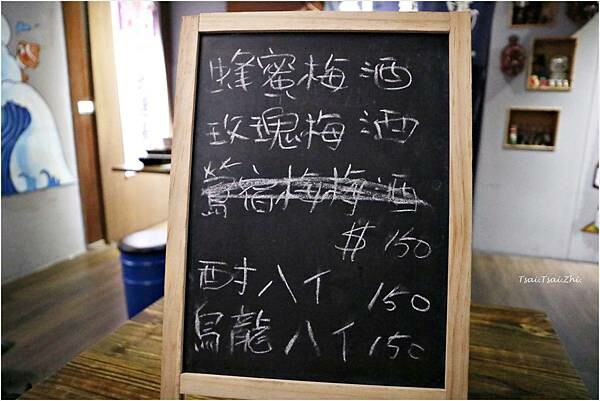 蜂蜜梅酒
玫瑰梅酒
鶯宿梅梅酒
$150
酎八イ 150
烏龍八イ 150
Tsai.Tsai.Zhi.